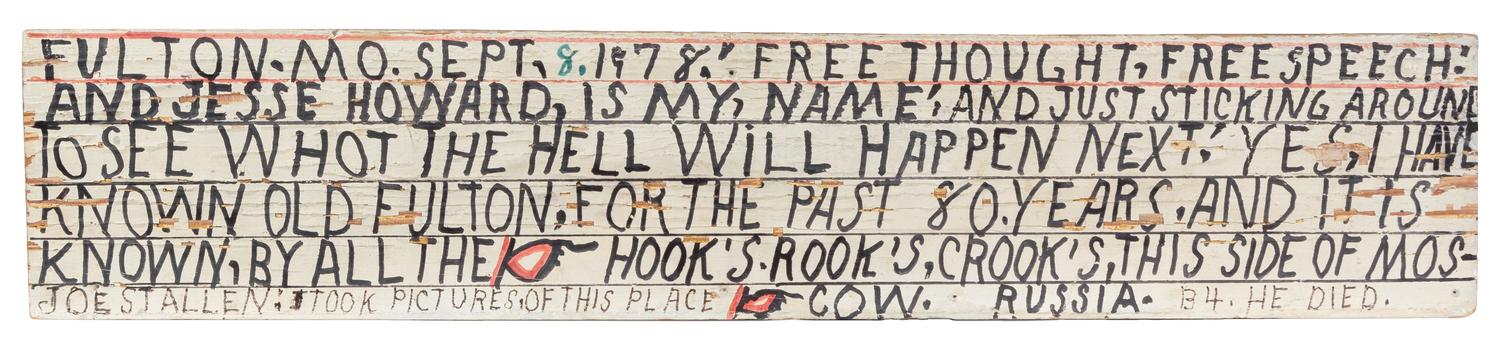 FULTON. MO. SEPT, 8. 1978.' FREE THOUGHT, FREE SPEECH:'
AND JESSE HOWARD, IS MY, NAME', AND JUST STICKING AROUND
TO SEE WHOT THE HELL WILL HAPPEN NEXT.' YES, I HAVE
KNOWN OLD FULTON. FOR THE PAST 80. YEARS. AND IT IS
KNOWN, BY ALL THE HOOK'S. ROOK'S, CROOK'S, THIS SIDE OF MOS-
JOE STALLEN: TOOK PICTURES. OF THIS PLACE COW. RUSSIA. B4. HE DIED.